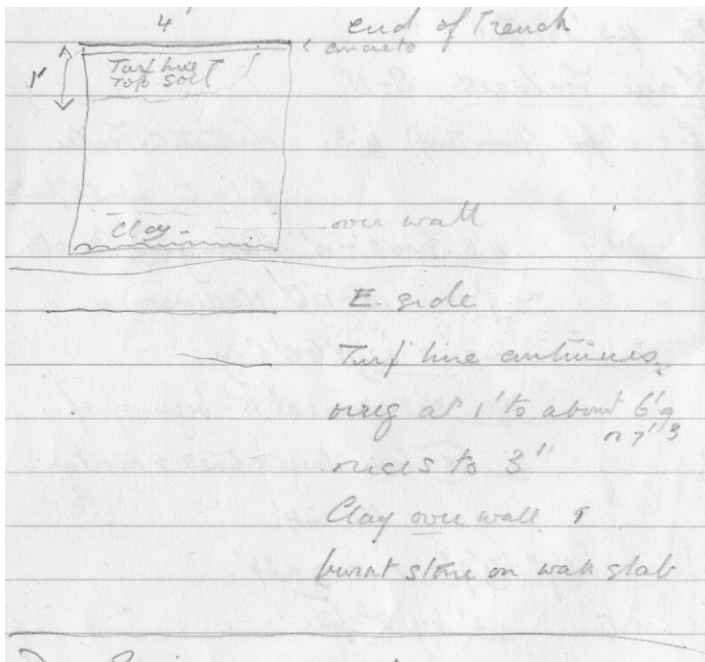 4' end of Trench
concrete
1' Turf line
Top Soil
Clay - over wall
E. side
Turf line continues
at 1' to about 6'9
or 7'3
rises to 3"
Clay over wall &
burnt stone on wall slab